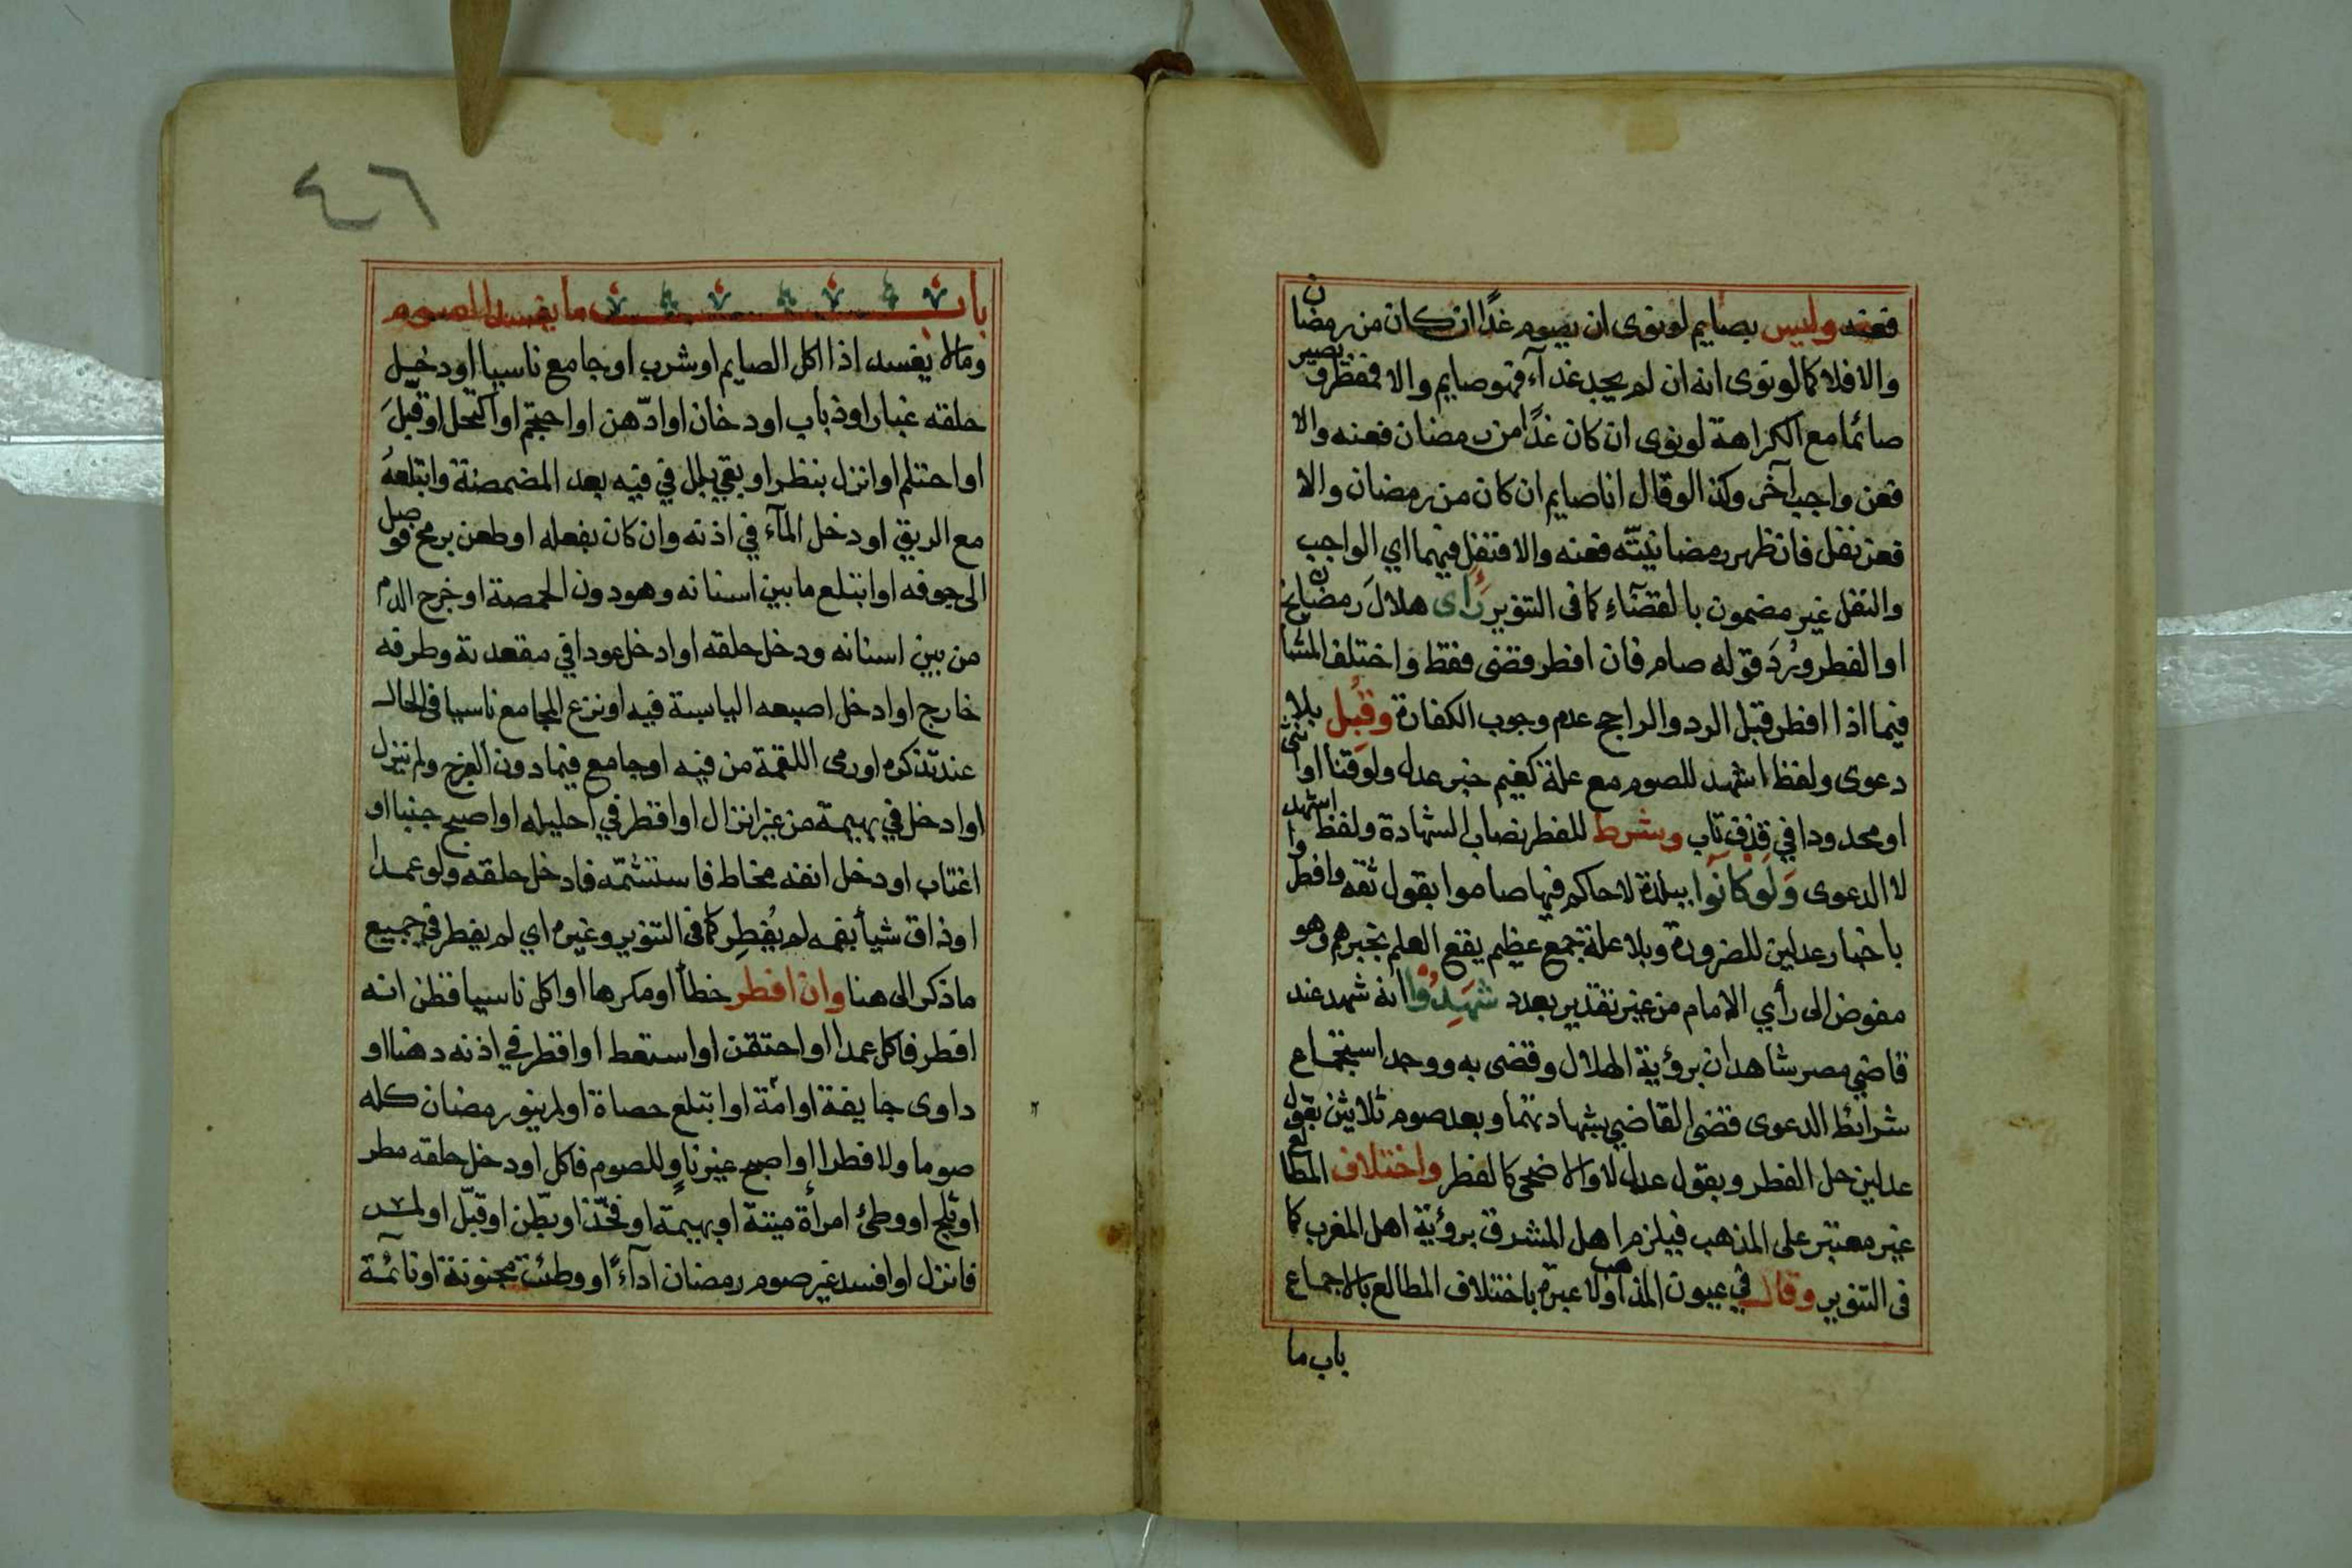 فعنه وليس بصايم لو نوى ان يصوم غدًا ان كان من رمضان
والا فلا كما لو نوى انه ان لم يجد غدآء فهو صايم والا فمفطر ويصير
صائما مع الكراهة لو نوى ان كان غدًا من رمضان فعنه والا
فعن واجب آخر وكذا لو قال انا صايم ان كان من رمضان والا
فعن نفل فان ظهر رمضانيّته فعنه والا فنفل فيهما اي الواجب
والنفل غير مضمون بالقضآء كما فى التنوير رَأى هلالَ رمضان
او الفطر ورُدَّ قوله صام فان افطر قضى فقط واختلف المشايخ
فيما اذا افطر قبل الرد والراجح عدم وجوب الكفارة وقُبِل بلا
دعوى ولفظ اشهد للصوم مع علة كغيم خبر عدل ولو قنا او انثى
او محدودا في قذف تاب وشرط للفطر نصاب الشهادة ولفظ اشهد
لا الدعوى وَلَو كَانُوا ببلدة لا حاكم فيها صاموا بقول ثقه وافطروا
باخبار عدلين للضرورة وبلا علة جمع عظيم يقع العلم بخبرهم وهو
مفوض الى رأي الامام من غير تقدير بعدد شَهِدُوا انه شهد عند
قاضي مصر شاهدان برؤية الهلال وقضى به ووجد استجماع
شرائط الدعوى قضى القاضي بشهادتهما وبعد صوم ثلاثين بقول
عدلين حل الفطر وبقول عدل لا والاضحى كالفطر واختلاف المطالع
غير معتبر على المذهب فيلزم اهل المشرق برؤية اهل المغرب كما
فى التنوير وقال في عيون المذاهب ولا عبرة باختلاف المطالع بالاجماع
باب ما
٤٦
باب ما يفسد الصوم
وما لا يفسد اذا اكل الصايم او شرب او جامع ناسيا او دخل
حلقه غبار او ذباب او دخان او ادّهن او احتجم او اكتحل او قبلَ
او احتلم او انزل بنظر او بقي بلل في فيه بعد المضمضة وابتلعهُ
مع الريق او دخل المآء في اذنه وان كان بفعله او طعن برمح فوصل
الى جوفه او ابتلع ما بين اسنانه وهو دون الحمصة او خرج الدم
من بين اسنانه ودخل حلقه او ادخل عودا في مقعدته وطرفه
خارج او ادخل اصبعه اليابسة فيه او نزع المجامع ناسيا فى الحال
عند تذكره او رمى اللقمة من فيه او جامع فيما دون الفرج ولم ينزل
او ادخل في بهيمة من غير انزال او اقطر في احليله او اصبح جنبا او
اغتاب او دخل انفه مخاط فاستنشمّه فادخل حلقه ولو عمدا
او ذاق شيأ بفمه لم يُفطِر كما فى التنوير وغيره اي لم يفطر في جميع
ما ذكر الى هنا وان افطر خطأ او مكرها او اكل ناسيا فظن انه
افطر فاكل عمدا او احتقن او استعط او اقطر في اذنه دهنا او
داوى جايفة او آمّة او ابتلع حصاة او لم ينو رمضان كله
صوما ولا فطرا او اصبح غير ناوٍ للصوم فاكل او دخل حلقه مطر
او ثلج او وطئ امرأة ميتة او بهيمة او فخّذ او بطّن او قبّل او لمس
فانزل او افسد غير صوم رمضان ادآءً او وطئت مجنونة او نآئمة